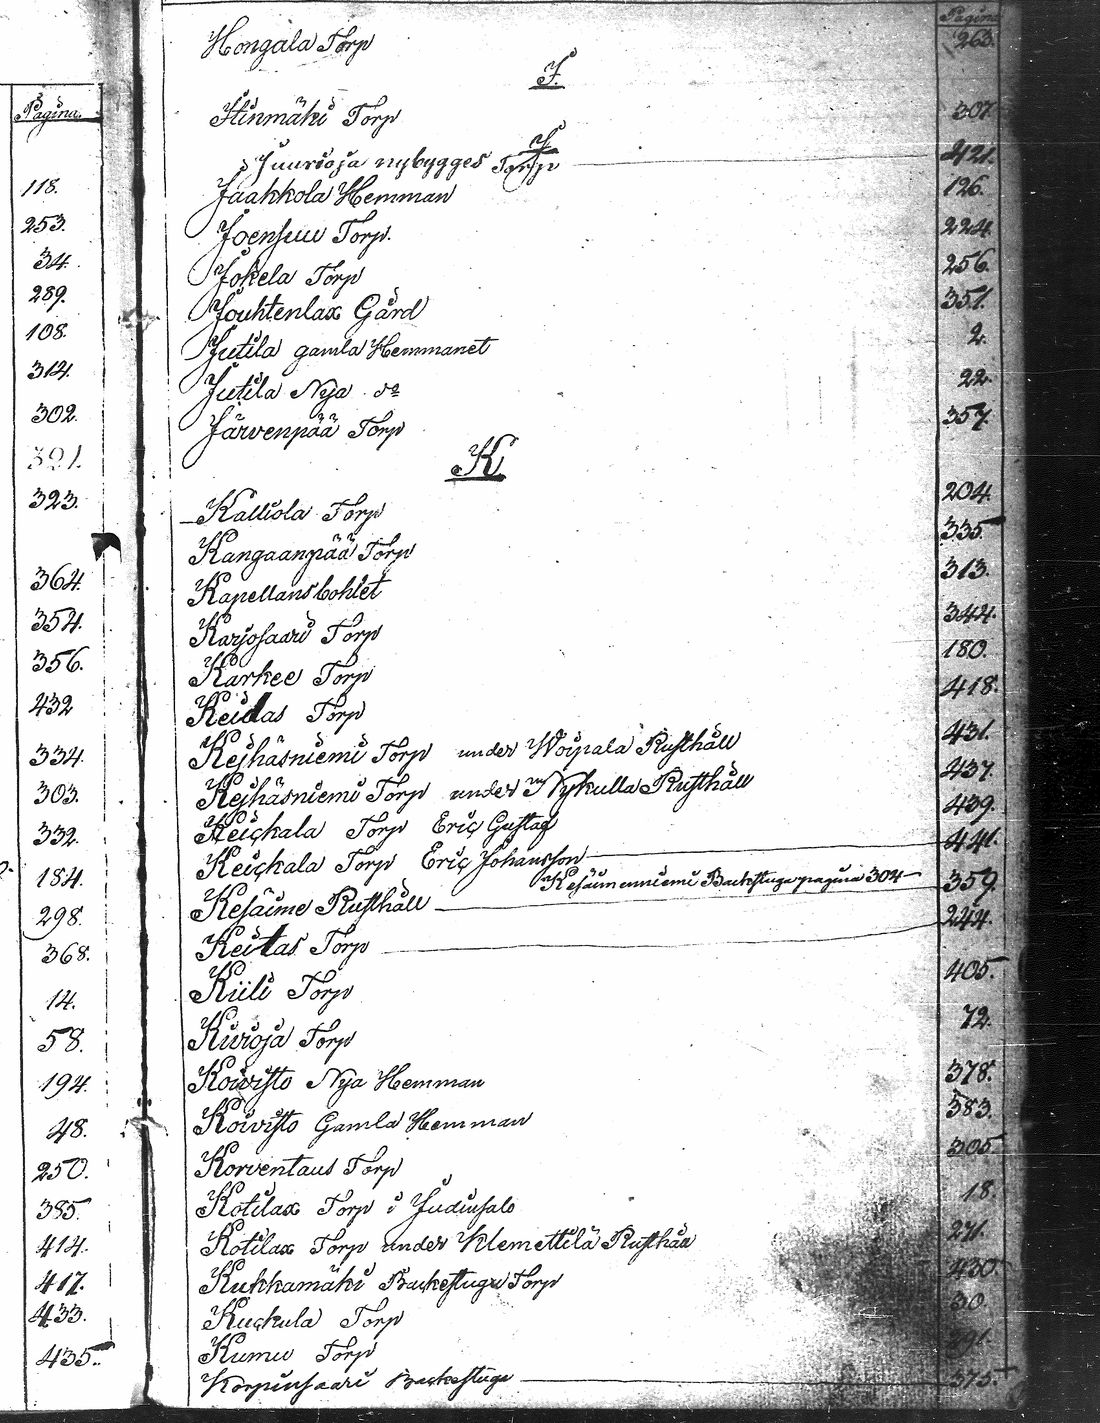 Pagina.
118.
253.
34.
289.
108.
314.
302.
391.
323.
364.
354.
356.
432
334.
303.
332.
184.
298.
368.
14.
58.
194.
48.
250.
385.
414.
417.
433.
435.
Pagina
Hongala Torp 263.
I.
Iinmäki Torp 307
J
Juurioja nybygges Torp 421.
Jaakkola Hemman 126.
Joensuu Torp. 224
Jokela Torp 256
Jouhtenlax Gård 351.
Jutila gamla Hemmanet 2.
Jutila Nya do 22.
Järvenpää Torp 357.
K
Kalliola Torp 204
Kangaanpää Torp 335
Kapellansbohlet 313.
Karjosaari Torp 344.
Karkee Torp 180.
Keidas Torp 418.
Kejhäsniemi Torp under Woipala Rusthåll 431.
Kejhäsniemi Torp under Nykulla Rusthåll 437.
Keickala Torp Eric Gustaf 439.
Keickala Torp Eric Johansson 441.
Kesäimenniemi Backstuga pagina 304
Kesäime Rusthåll 359.
Keitas Torp 244.
Kiili Torp 405.
Kivioja Torp 72.
Koivisto Nya Hemman 378.
Koivisto Gamla Hemman 383.
Korventaus Torp 305
Kotilax Torp i Judinsalo 18.
Kotilax Torp under Klemettilä Rusthåll 271.
Kukkamäki Backstugu Torp 430
Kuckula Torp 30.
Kumu Torp 291.
Korpinsaari Backstuga 375.